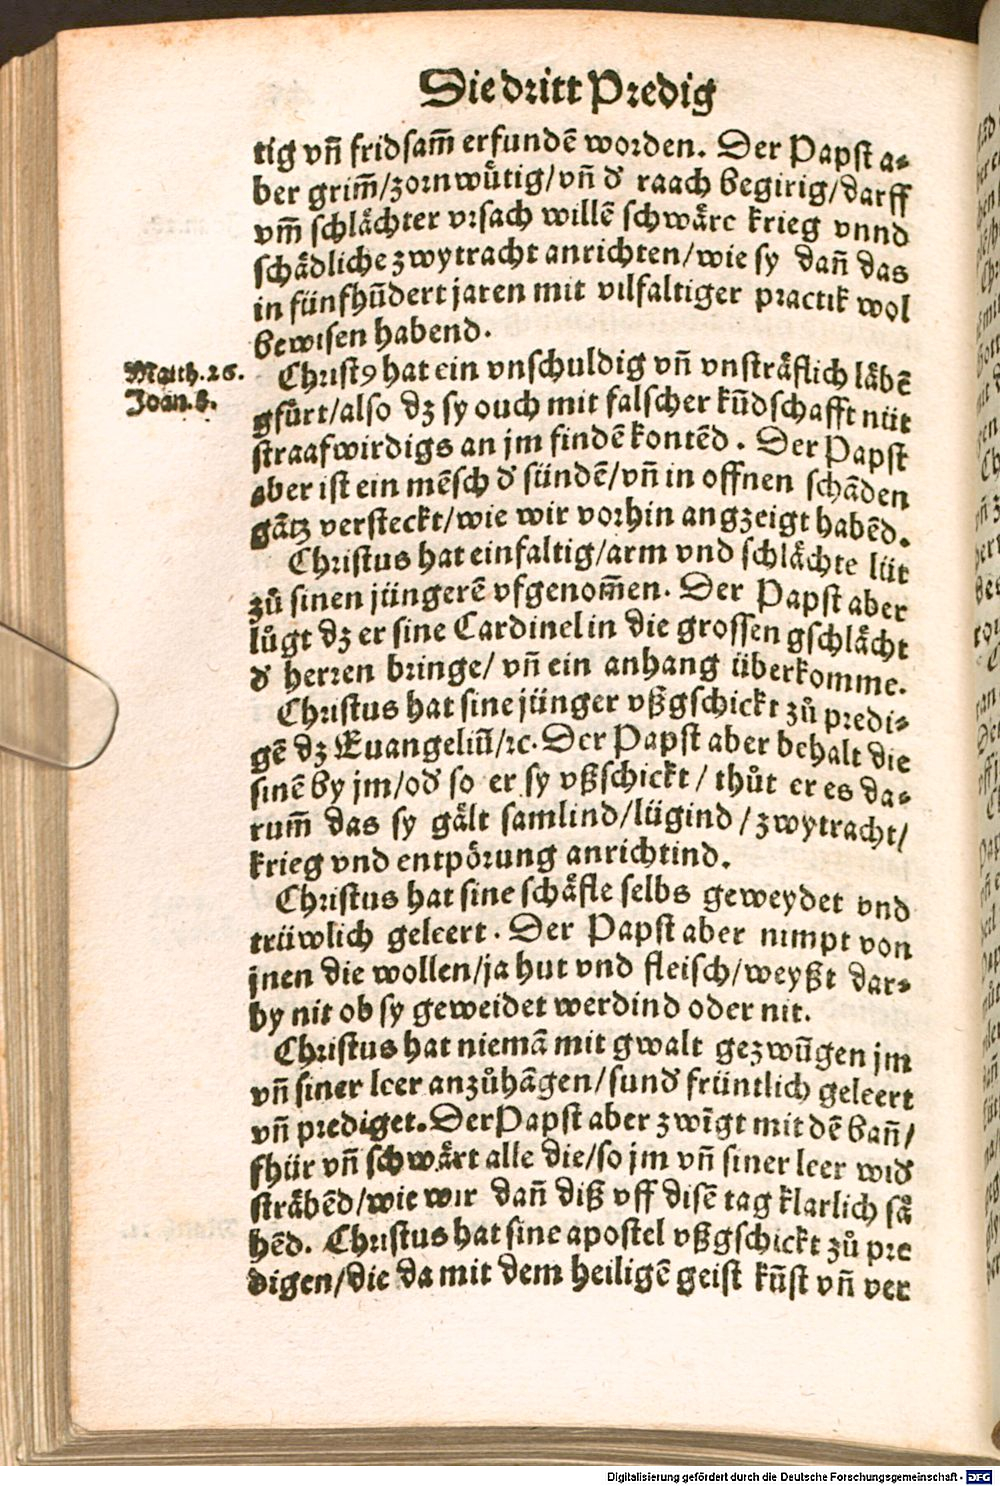 Die dritt Predig
tig vñ fridsam̃ erfundẽ worden. Der Papst a⸗
ber grim̃/zornwuͤtig/vñ dˀ raach begirig/darff
vm̃ schlaͤchter vrsach willẽ schwaͤre krieg vnnd
schaͤdliche zwytracht anrichten/wie sy dañ das
in fünfhũdert jaren mit vilfaltiger practik wol
bewisen habend.
Matth.26.
Joan.8.
Christꝰ hat ein vnschuldig vñ vnstraͤflich laͤbẽ
gfuͤrt/also dz sy ouch mit falscher kũdschafft nüt
straafwirdigs an jm findẽ kontẽd. Der Papst
aber ist ein mẽsch dˀ sündẽ/vñ in offnen schãden
gãtz versteckt/wie wir vorhin angzeigt habẽd.
Christus hat einfaltig/arm vnd schlaͤchte lüt
zů sinen jüngerẽ vfgenom̃en. Der Papst aber
lůgt dz er sine Cardinel in die grossen gschlaͤcht
dˀ herren bringe/ vñ ein anhang überkomme.
Christus hat sine jünger vßgschickt zů predi⸗
gẽ dz Euangeliũ/ꝛc. Der Papst aber behalt die
sinẽ by jm/odˀ so er sy vßschickt/ thůt er es da⸗
rum̃ das sy gaͤlt samlind/lügind/zwytracht/
krieg vnd entpoͤrung anrichtind.
Christus hat sine schaͤfle selbs geweydet vnd
trüwlich geleert. Der Papst aber nimpt von
jnen die wollen/ja hut vnd fleisch/weyßt dar⸗
by nit ob sy geweidet werdind oder nit.
Christus hat niemã mit gwalt gezwũgen jm
vñ siner leer anzůhãgen/sundˀ früntlich geleert
vñ prediget. Der Papst aber zwĩgt mit dẽ bañ/
fhür vñ schwaͤrt alle die/so jm vñ siner leer widˀ
straͤbẽd/wie wir dañ diß vff disẽ tag klarlich saͤ
hẽd. Christus hat sine apostel vßgschickt zů pre
digen/die da mit dem heiligẽ geist kũst vñ ver
Digitalisierung gefördert durch die Deutsche Forschungsgemeinschaft - DFG